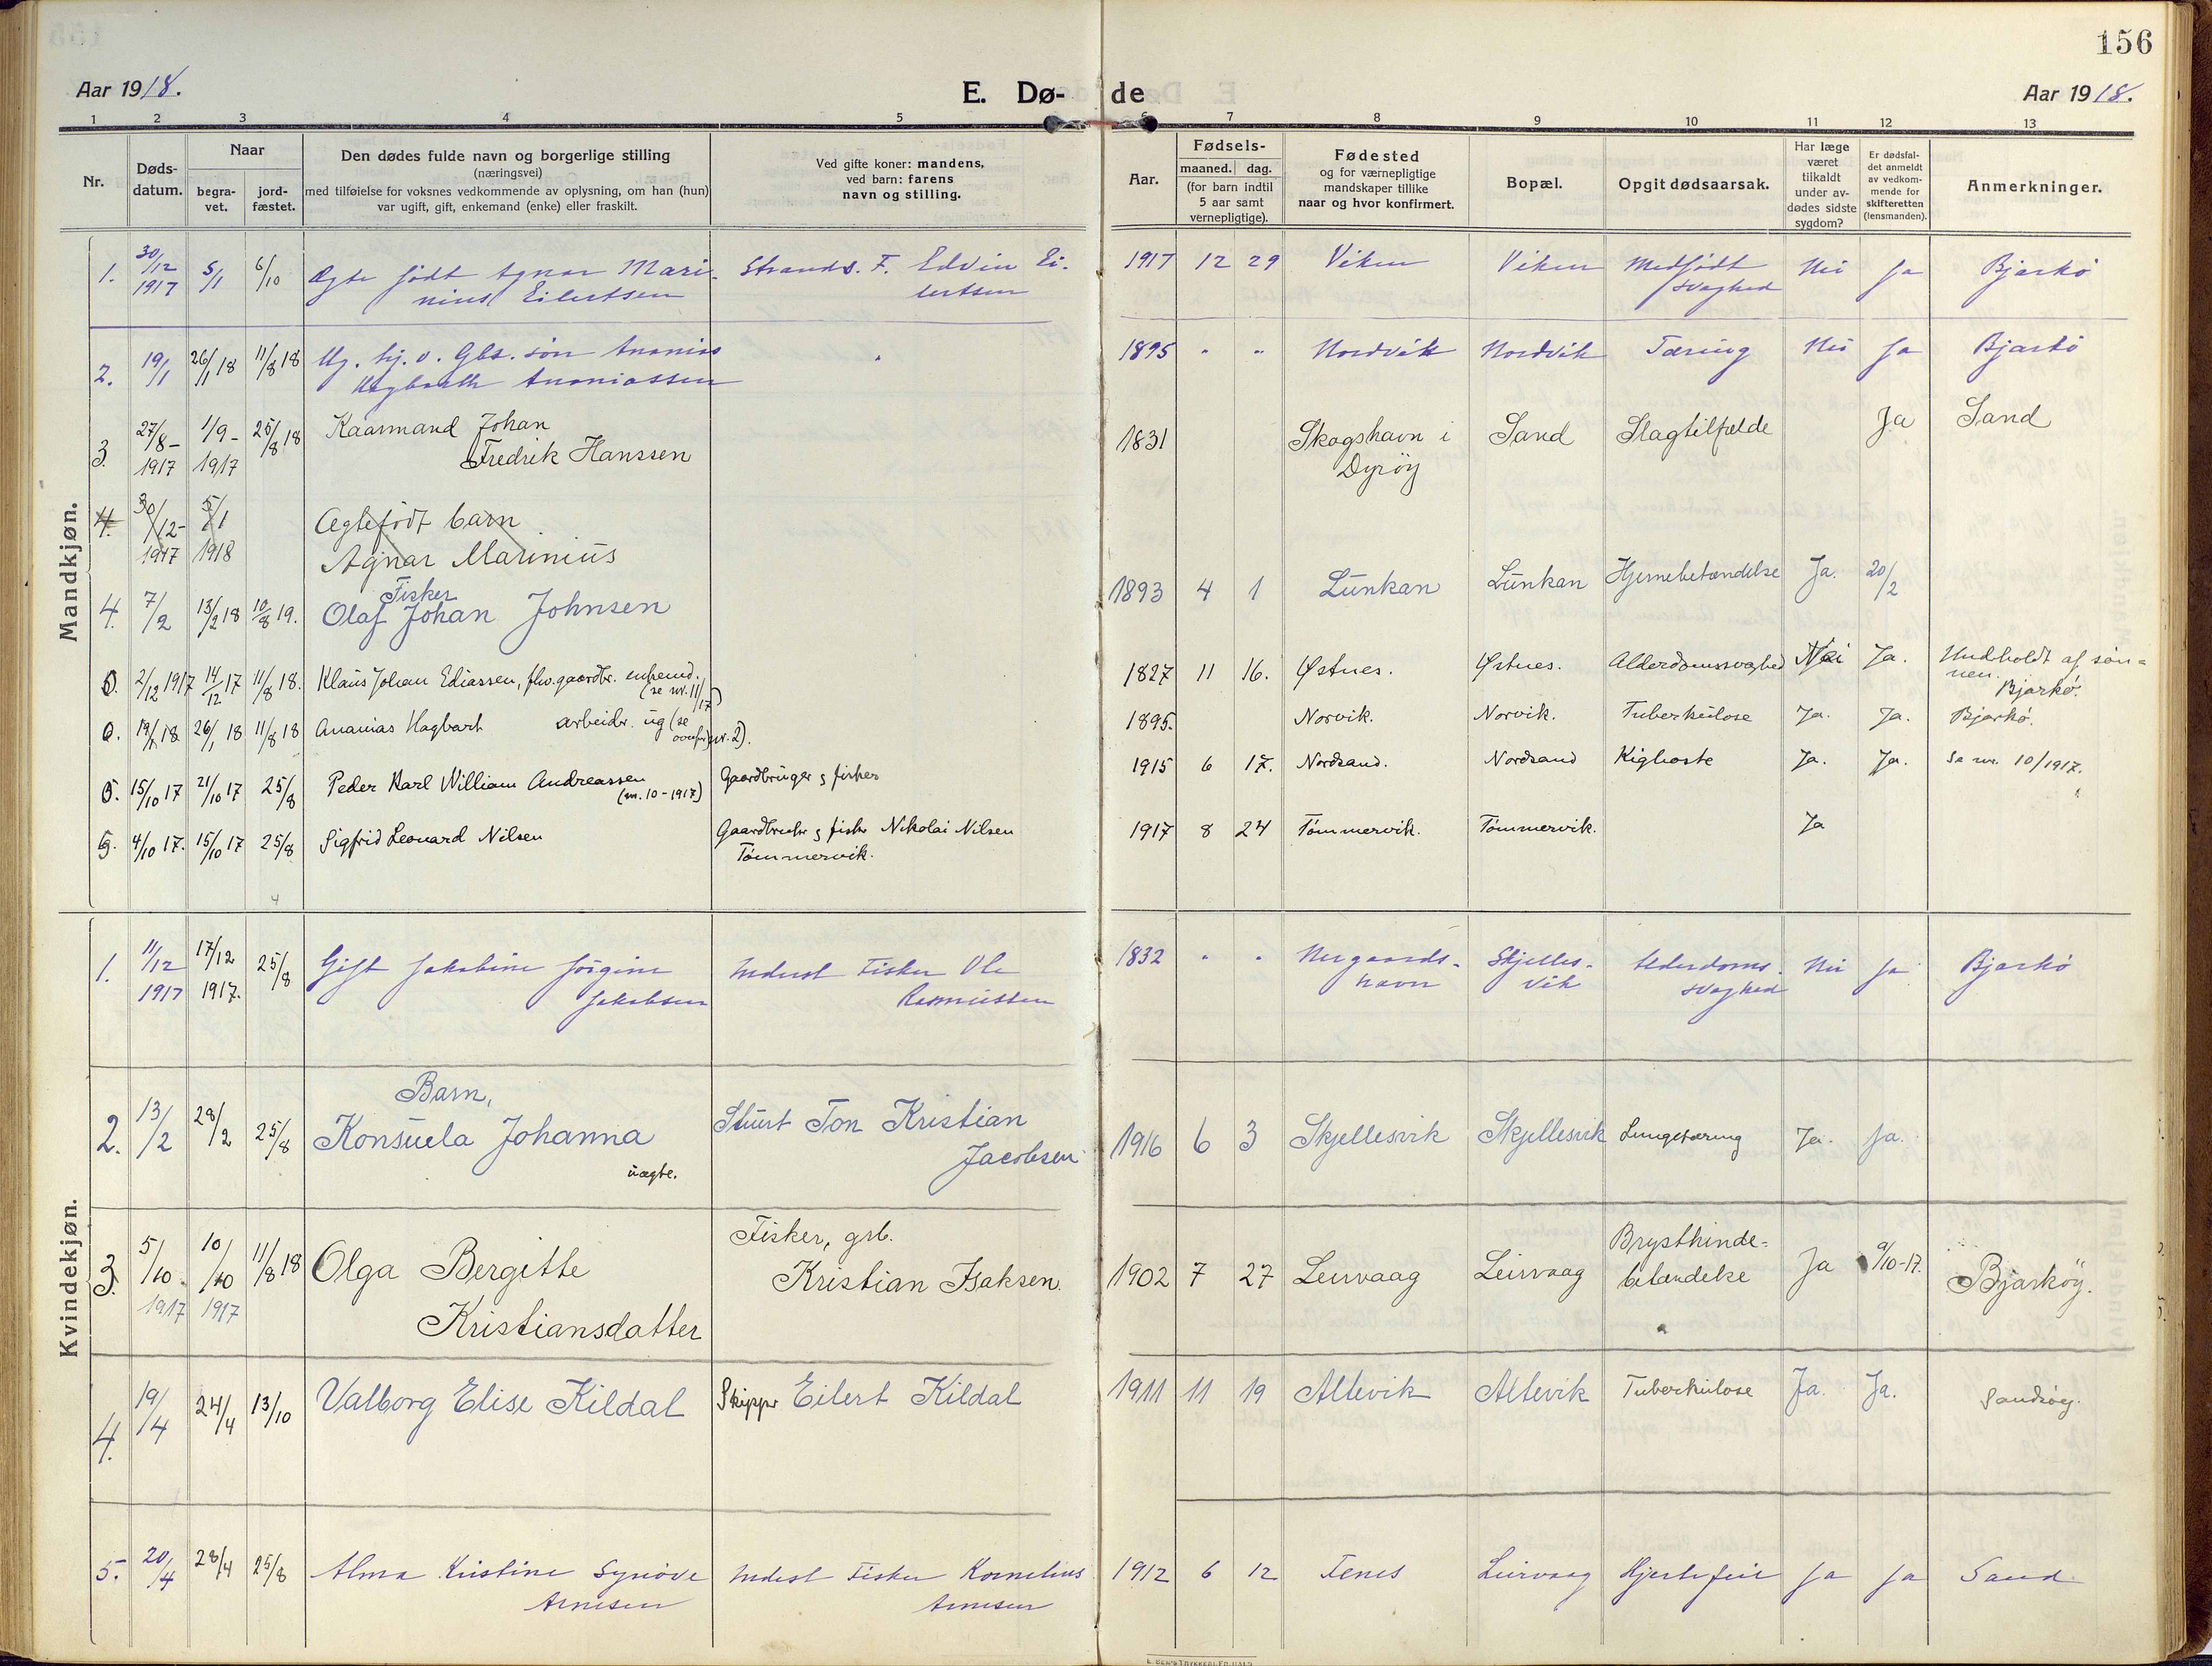 156
Aar 1918.
E. Dø- de
Aar 1918.
1 2 3 4 5 6 7 8 9 10 11 12 13
Nr.
Døds-
datum.
Naar
begra-
vet.
jord-
fæstet.
Den dødes fulde navn og borgerlige stilling
(næringsvei)
med tilføielse for voksnes vedkommende av oplysning, om han (hun)
var ugift, gift, enkemand (enke) eller fraskilt.
Ved gifte koner: mandens,
ved barn: farens
navn og stilling.
Aar.
Fødsels-
maaned. dag.
(for barn indtil
5 aar samt
vernepligtige).
Fødested
og for værnepligtige
mandskaper tillike
naar og hvor konfirmert.
Bopæl.
Opgit dødsaarsak.
Har læge
været
tilkaldt
under av-
dødes sidste
sygdom?
Er dødsfal-
det anmeldt
av vedkom-
mende for
skifteretten
(lensmanden).
Anmerkninger.
Mandkjøn.
1. 30/12 5/1 6/10 Ægte født Agnar Mari- Strands. F. Edvin Ei- 1917 12 29 Viken Viken Medfødt Nei Ja Bjarkö
1917 nius Eilertsen lertsen svaghed
2. 19/1 26/1 18 11/8 18 Ug. hj. v. Gbs. søn Ananias 1895 " " Nordvik Nordvik Tæring Nei Ja Bjarkö
Hagbarth Ananiassen
3. 27/8- 1/9- 25/8 18 Kaarmand Johan 1831 Skogshavn i Sand Slagtilfælde Ja Sand
1917 1917 Fredrik Hanssen Dyrøy
4. 30/12- 5/1 Ægtefødt barn
1917 1918 Agnar Marinius
Fisker
4. 7/2 13/2 18 10/8 19. Olaf Johan Johnsen 1893 4 1 Lunkan Lunkan Hjernebetændelse Ja. 20/2
0. 2/12 1917 14/12 17 11/8 18. Klaus Johan Ediassen, fhv. gaardbr. enkemd. 1827 11 16. Østnes. Østnes. Alderdomssvaghed Nei Ja. Undholdt af søn=
(se nr. 11/17) nen. Bjarkö.
0. 19/1 18 26/1 18 11/8 18 Ananias Hagbart arbeidr. ug (se 1895. Norvik. Norvik. Tuberkulose Ja. Ja. Bjarkö.
ovenfor nr. 2).
5. 15/10 17 21/10 17 25/8 Peder Karl William Andreassen Gaardbruger & fisker 1915 6 17. Nordsand. Nordsand Kighoste Ja. Ja. Se nr. 10/1917.
(nr. 10-1917)
4/10 17. 15/10 17 25/8 Sigfrid Leonard Nilsen Gaardbruker & fisker Nikolai Nilsen 1917 8 24 Tömmervik. Tömmervik. Ja
Tömmervik.
4
Kvindekjøn.
1. 11/12 17/12 25/8 Gift Jakobine Jörgine Inderst Fisker Ole 1832 " " Nergaards- Skjelles- Alderdoms- Nei Ja Bjarkö
1917 1917. Jakobsen Rasmussen havn vik svaghed
Barn,
2. 13/2 28/2 25/8 Konsuela Johanna Stuert Ton Kristian 1916 6 3 Skjellesvik Skjellesvik Lungetæring Ja. Ja.
uægte. Jacobsen
3. 5/10 10/10 11/8 18 Olga Bergitte Fisker, grb. 1902 7 27 Leirvaag Leirvaag Brysthinde= Ja 9/10-17. Bjarköy.
1917 1917 Kristiansdatter Kristian Isaksen. betændelse
4. 19/4 24/4 13/10 Valborg Elise Kildal Skippr Eilert Kildal 1911 11 19 Altevik Altevik Tuberkulose Ja. Ja. Sandsöy.
5. 20/4 28/4 25/8 Alma Kristine Synöve Inderst Fisker Kornelius 1912 6 12 Tenes Leirvaag Hjertefeil Ja Ja Sand
Arnesen Arnesen